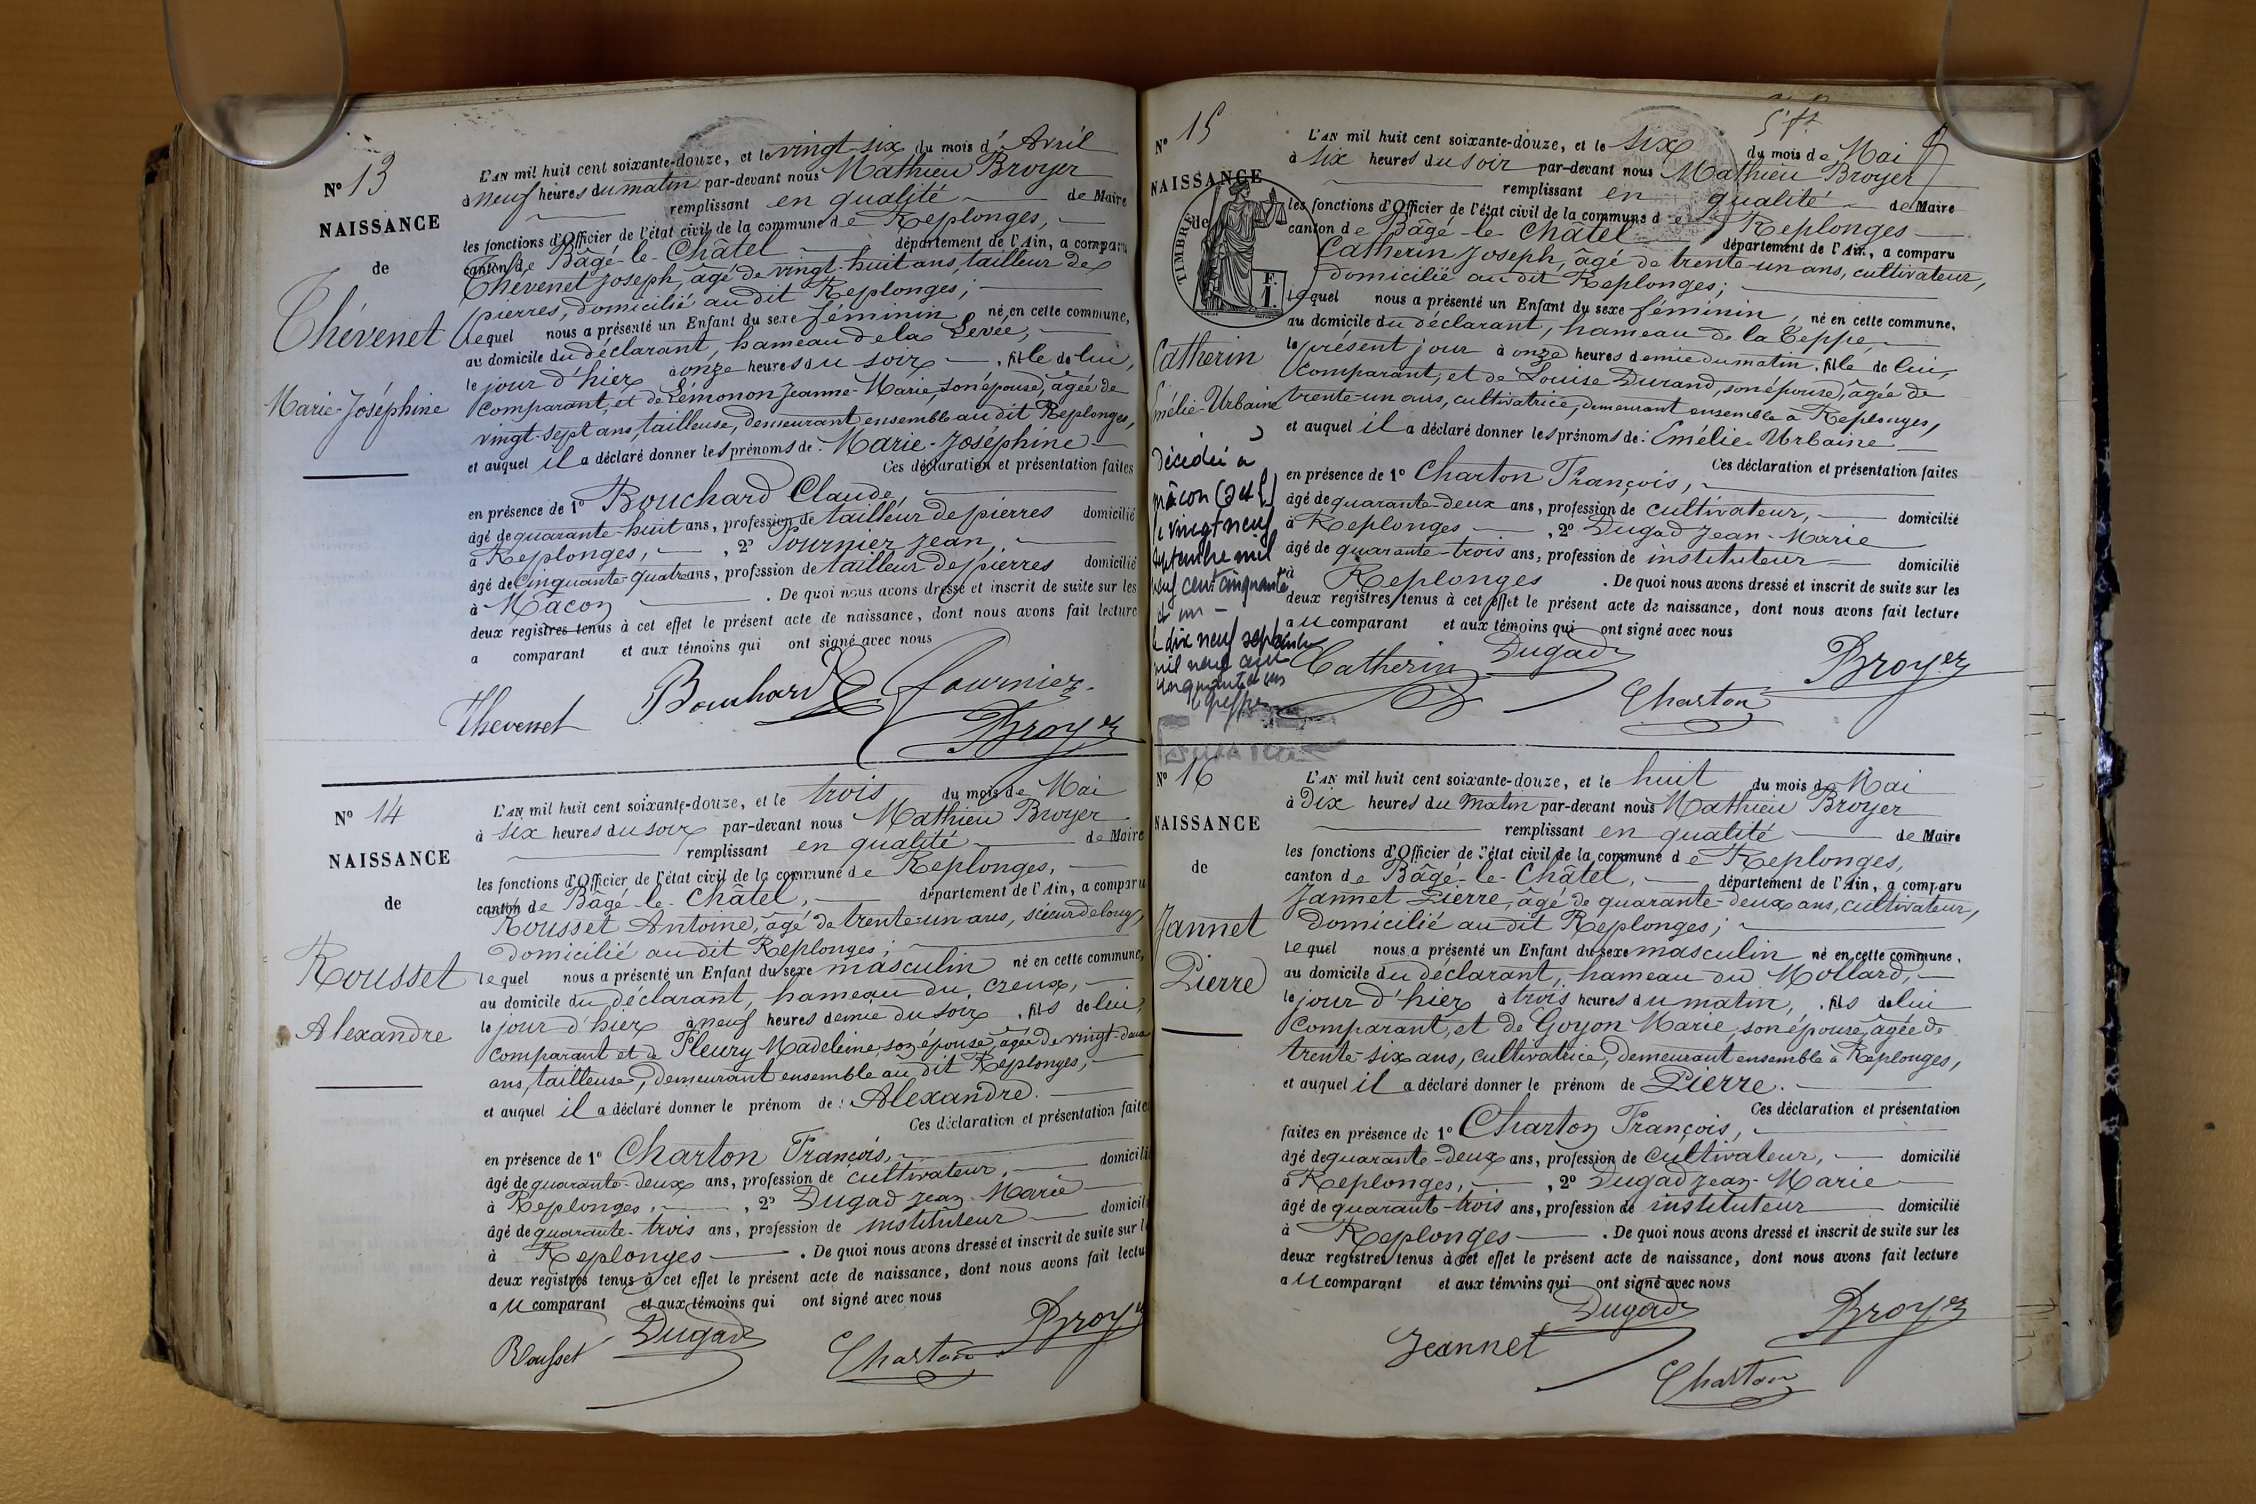 N° 13
NAISSANCE
de
Thévenet
Marie-Joséphine
L'AN mil huit cent soixante-douze, et le vingt six du mois d'Avril
à neuf heures du matin par-devant nous Mathieu Broyer
remplissant en qualité de Maire
les fonctions d'Officier de l'état civil de la commune de Replonges,
canton de Bâgé-le-Châtel département de l'Ain, a comparu
Thévenet Joseph, âgé de vingt-huit ans, tailleur de
pierres, domicilié au dit Replonges;
Lequel nous a présenté un Enfant du sexe féminin né en cette commune,
au domicile du déclarant, hameau de la Levée,
le jour d'hier à onze heures du soir, fille de lui,
comparant, et de Lémonon Jeanne-Marie, son épouse, âgée de
vingt-sept ans, tailleuse, demeurant ensemble au dit Replonges,
et auquel il a déclaré donner les prénoms de: Marie-Joséphine
Ces déclaration et présentation faites
en présence de 1° Bouchard Claude,
âgé de quarante-huit ans, profession de tailleur de pierres domicilié
à Replonges, , 2° Fournier Jean,
âgé de cinquante-quatre ans, profession de tailleur de pierres domicilié
à Mâcon . De quoi nous avons dressé et inscrit de suite sur les
deux registres tenus à cet effet le présent acte de naissance, dont nous avons fait lecture
a comparant et aux témoins qui ont signé avec nous
Thevenet Bouchard Fournier
Broyer
N° 14
NAISSANCE
de
Rousset
Alexandre
L'AN mil huit cent soixante-douze, et le trois du mois de Mai
à six heures du soir par-devant nous Mathieu Broyer
remplissant en qualité de Maire
les fonctions d'Officier de l'état civil de la commune de Replonges,
canton de Bâgé-le-Châtel, département de l'Ain, a comparu
Rousset Antoine, âgé de trente-un ans, scieur de long,
domicilié au dit Replonges;
Lequel nous a présenté un Enfant du sexe masculin né en cette commune,
au domicile du déclarant, hameau du creux,
le jour d'hier à neuf heures demie du soir, fils de lui,
comparant et de Fleury Madeleine, son épouse, âgée de vingt-deux
ans, tailleuse, demeurant ensemble au dit Replonges,
et auquel il a déclaré donner le prénom de: Alexandre.
Ces déclaration et présentation faites
en présence de 1° Charton François,
âgé de quarante-deux ans, profession de cultivateur, domicilié
à Replonges, , 2° Dugad Jean-Marie
âgé de quarante-trois ans, profession de instituteur domicilié
à Replonges . De quoi nous avons dressé et inscrit de suite sur les
deux registres tenus à cet effet le présent acte de naissance, dont nous avons fait lecture
au comparant et aux témoins qui ont signé avec nous
Rousset Dugad Charton Broyer
N° 15
NAISSANCE
de
TIMBRE
F.
1.
Catherin
Emélie-Urbaine
Décédée à
Mâcon (S et L)
le vingt neuf
septembre mil
neuf cent cinquante
et un
Le dix neuf
mil neuf cent
cinquante un
L'AN mil huit cent soixante-douze, et le six du mois de Mai
à six heures du soir par-devant nous Mathieu Broyer
remplissant en qualité de Maire
les fonctions d'Officier de l'état civil de la commune de Replonges
canton de Bâgé-le-Châtel département de l'Ain, a comparu
Catherin Joseph, âgé de trente-un ans, cultivateur,
domicilié au dit Replonges;
Lequel nous a présenté un Enfant du sexe féminin, né en cette commune,
au domicile du déclarant, hameau de la Teppe,
le présent jour à onze heures demie du matin, fille de lui,
comparant, et de Louise Durand, son épouse, âgée de
trente-un ans, cultivatrice, demeurant ensemble à Replonges,
et auquel il a déclaré donner les prénoms de: Emélie-Urbaine
Ces déclaration et présentation faites
en présence de 1° Charton François,
âgé de quarante-deux ans, profession de cultivateur, domicilié
à Replonges , 2° Dugad Jean-Marie
âgé de quarante-trois ans, profession de instituteur domicilié
à Replonges . De quoi nous avons dressé et inscrit de suite sur les
deux registres tenus à cet effet le présent acte de naissance, dont nous avons fait lecture
au comparant et aux témoins qui ont signé avec nous
Catherin Dugad Charton Broyer
N° 16
NAISSANCE
de
Jannet
Pierre
L'AN mil huit cent soixante-douze, et le huit du mois de Mai
à Dix heures du matin par-devant nous Mathieu Broyer
remplissant en qualité de Maire
les fonctions d'Officier de l'état civil de la commune de Replonges,
canton de Bâgé-le-Châtel, département de l'Ain, a comparu
Jannet Pierre, âgé de quarante-deux ans, cultivateur,
domicilié au dit Replonges;
Lequel nous a présenté un Enfant du sexe masculin né en cette commune,
au domicile du déclarant, hameau du Mollard,
le jour d'hier à trois heures du matin, fils de lui
comparant, et de Goyon Marie, son épouse, âgée de
trente-six ans, cultivatrice, demeurant ensemble à Replonges,
et auquel il a déclaré donner le prénom de Pierre.
Ces déclaration et présentation
faites en présence de 1° Charton François,
âgé de quarante-deux ans, profession de cultivateur, domicilié
à Replonges, , 2° Dugad Jean-Marie
âgé de quarante-trois ans, profession de instituteur domicilié
à Replonges . De quoi nous avons dressé et inscrit de suite sur les
deux registres tenus à cet effet le présent acte de naissance, dont nous avons fait lecture
au comparant et aux témoins qui ont signé avec nous
Jeannet Dugad Charton Broyer